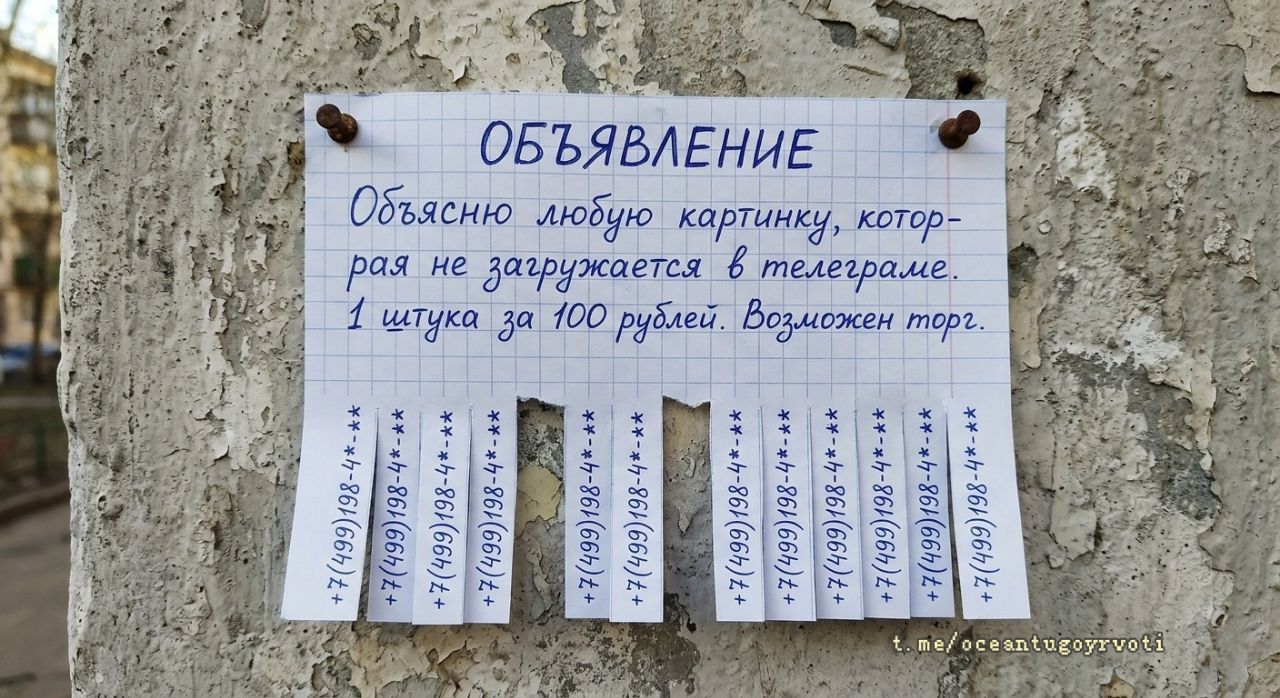 ОБЪЯВЛЕНИЕ
Объясню любую картинку, котор-
рая не загружается в телеграме.
1 штука за 100 рублей. Возможен торг.
+7(499)198-4*-**
+7(499)198-4*-**
+7(499)198-4*-**
+7(499)198-4*-**
+7(499)198-4*-**
+7(499)198-4*-**
+7(499)198-4*-**
+7(499)198-4*-**
+7(499)198-4*-**
+7(499)198-4*-**
+7(499)198-4*-**
+7(499)198-4*-**
t.me/oceantugoyrvoti